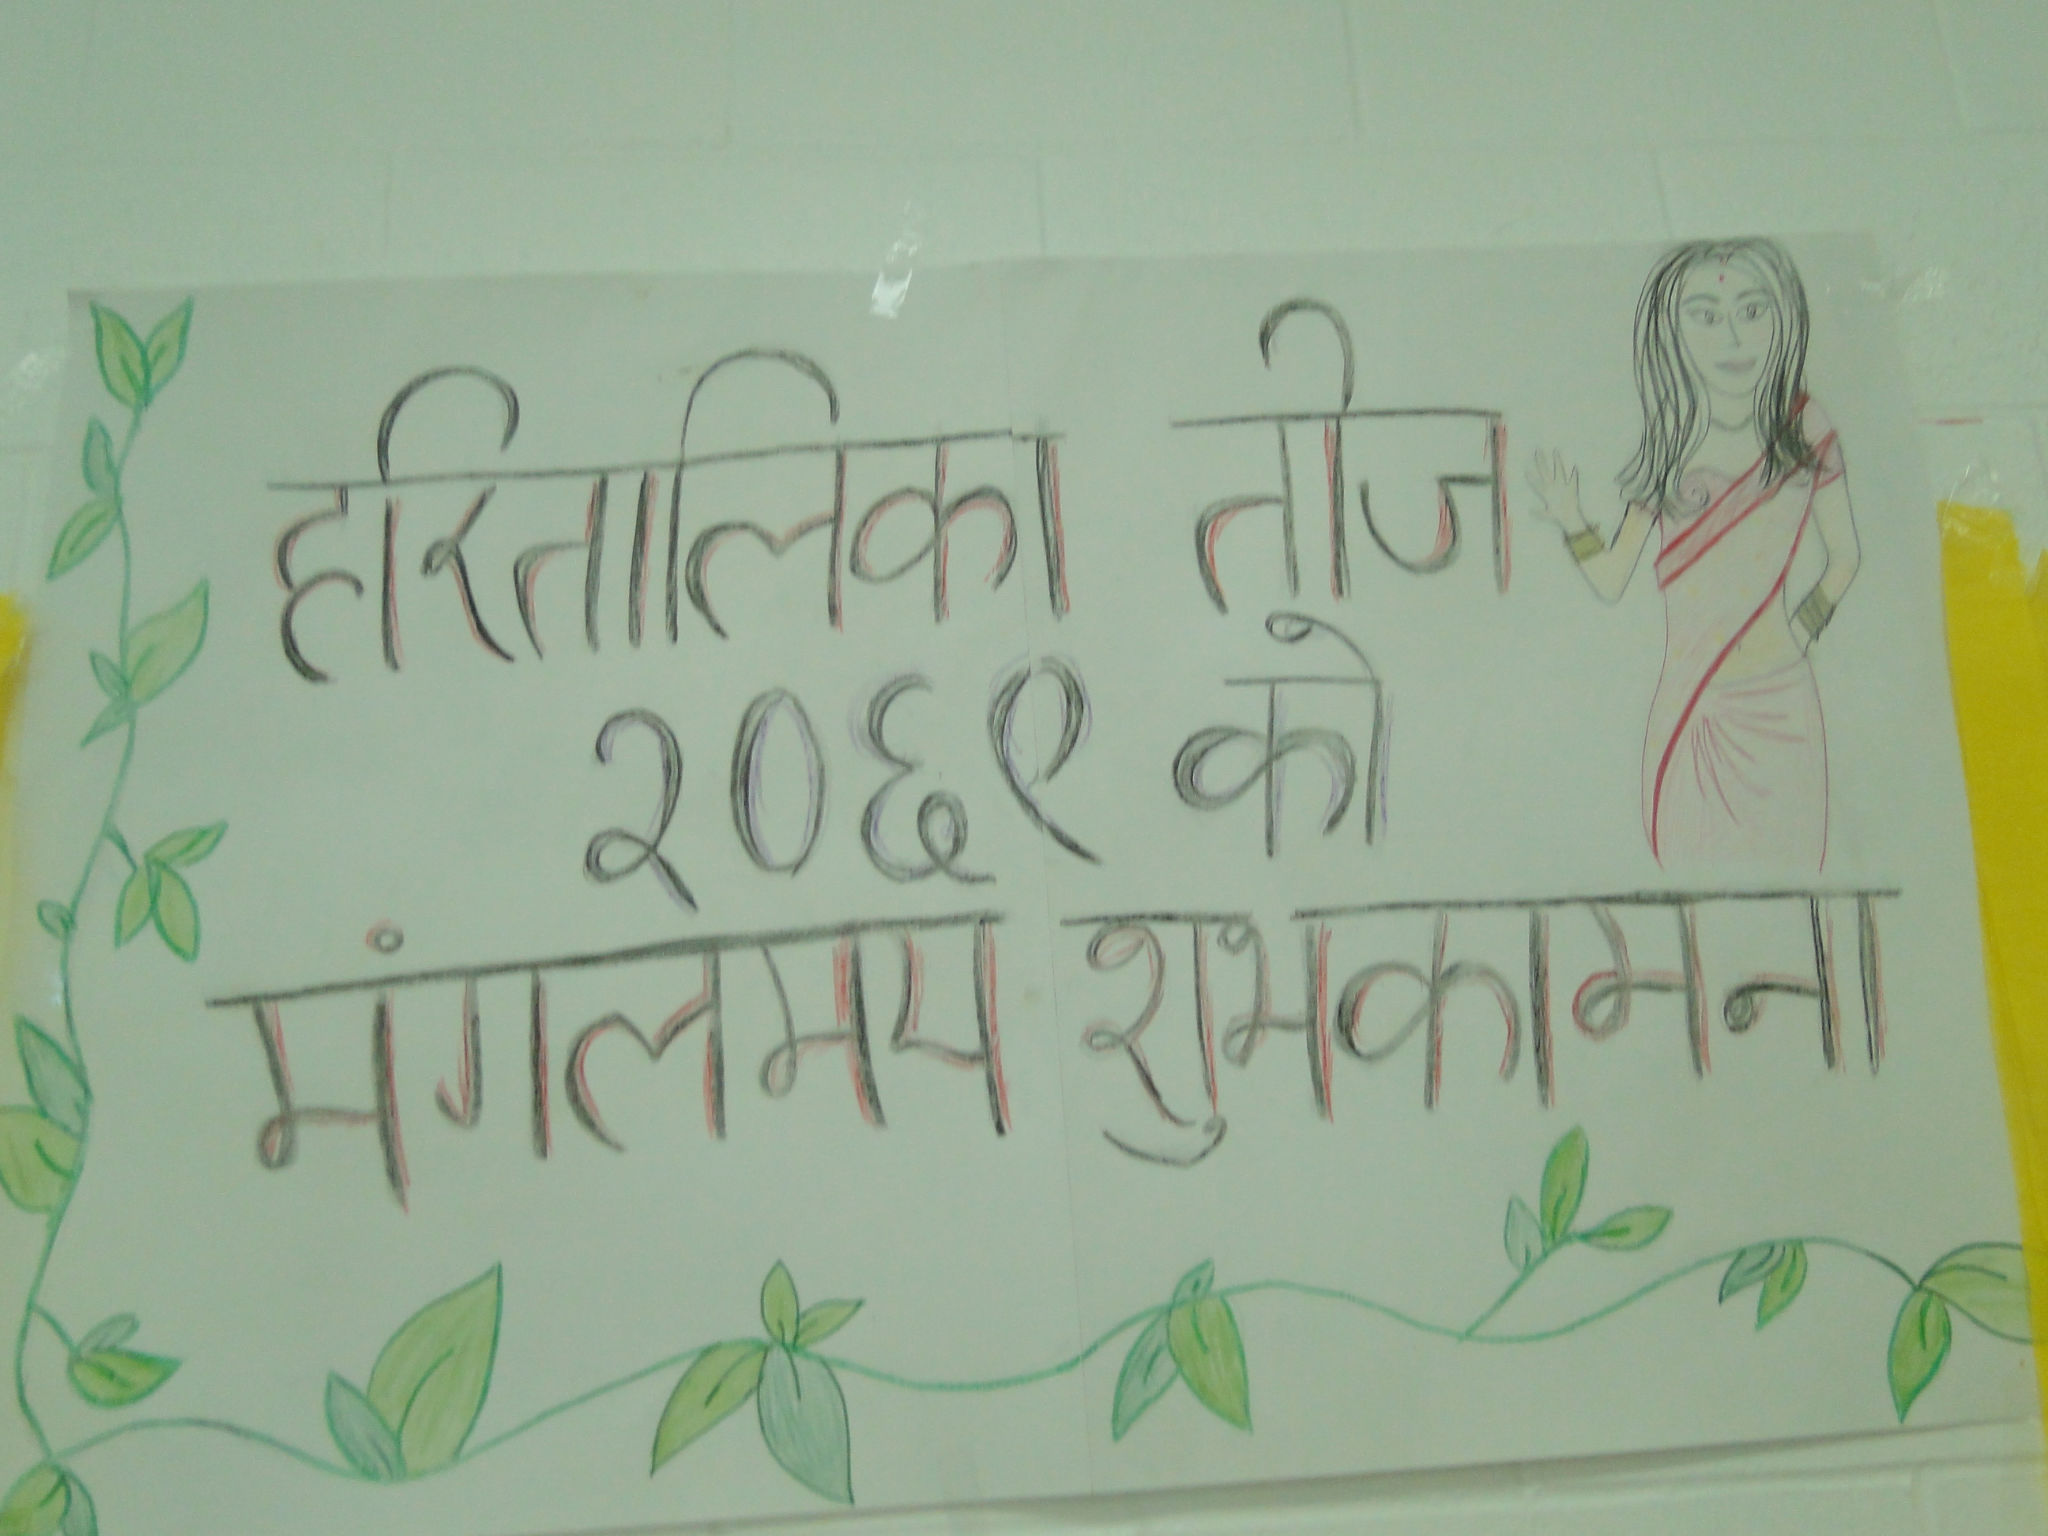 हरितालिका तीज
२०६९ को
मंगलमय शुभकामना